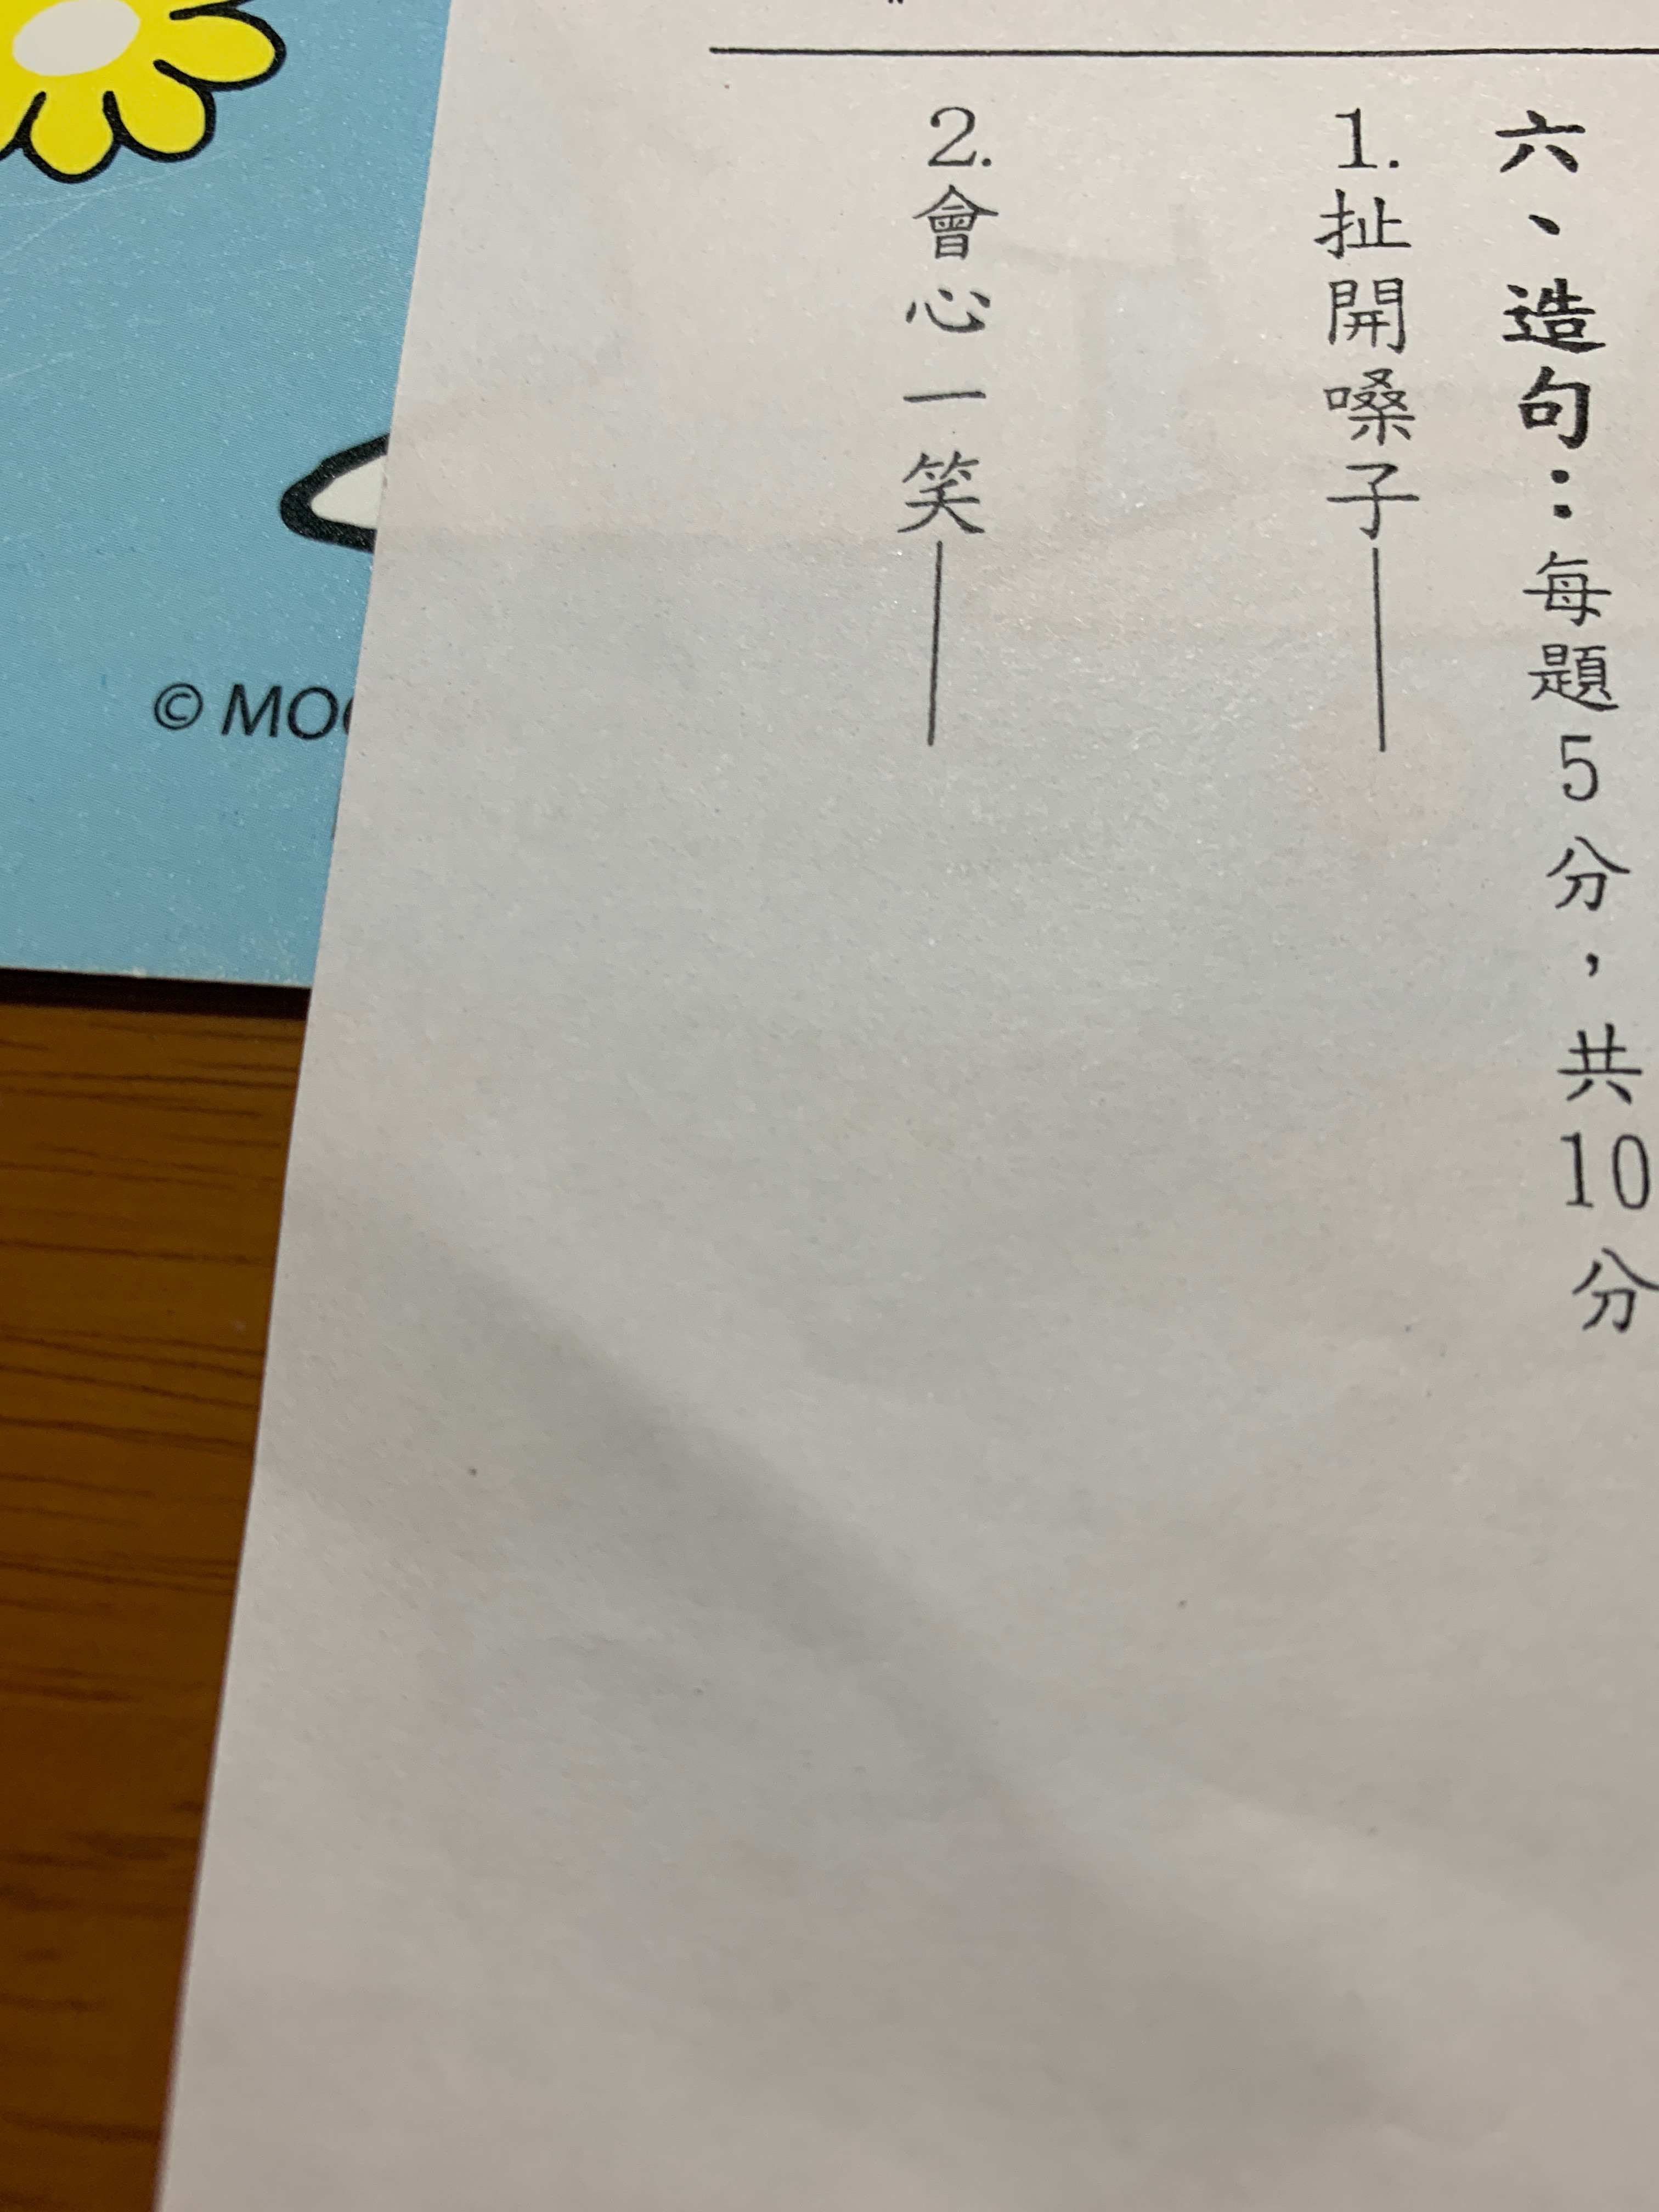 六、造句：每題5分，共10分
1.扯開嗓子——
2.會心一笑——
© MO